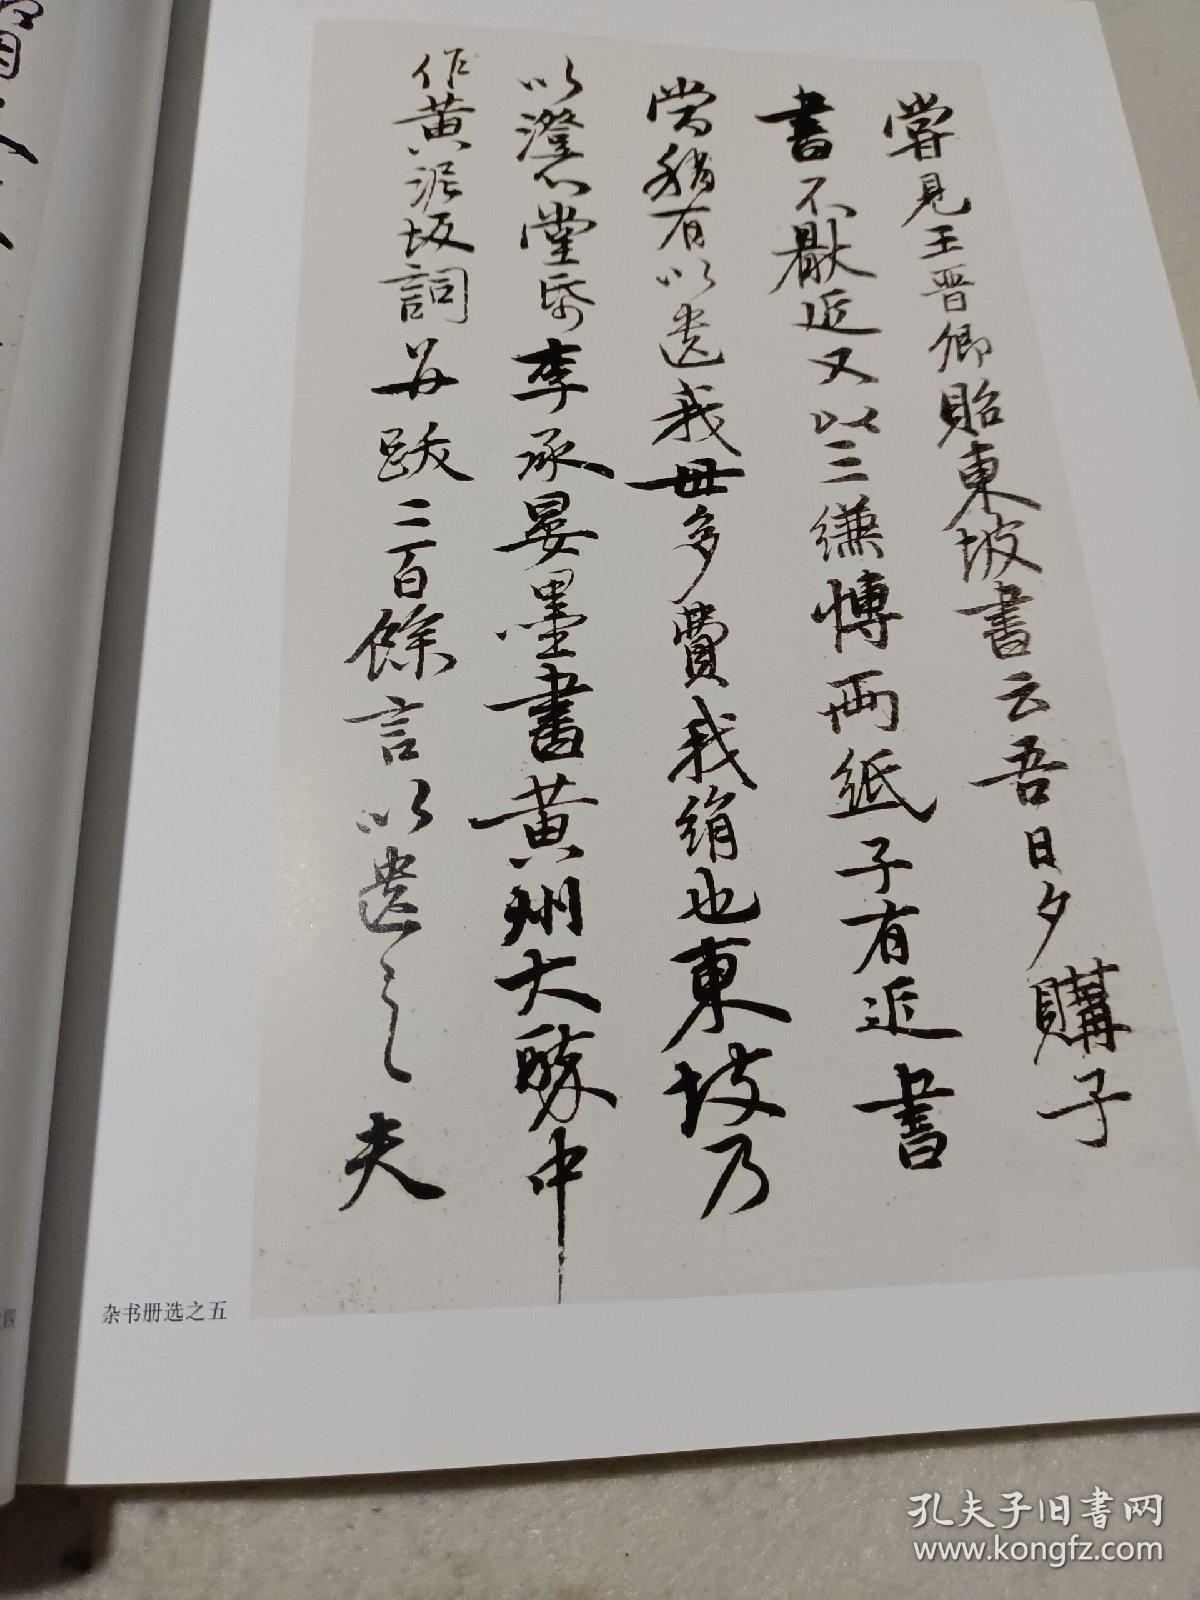 嘗見王晋卿貽東坡書云吾日夕購子
書不猒近又以三縑博兩紙子有近書
當稍有以遺我毋多費我絹也東坡乃
以澄心堂帋李承晏墨書黄州大醉中
作黄泥坂詞并跋二百餘言以遺之夫
杂书册选之五
孔夫子旧书网
www.kongfz.com